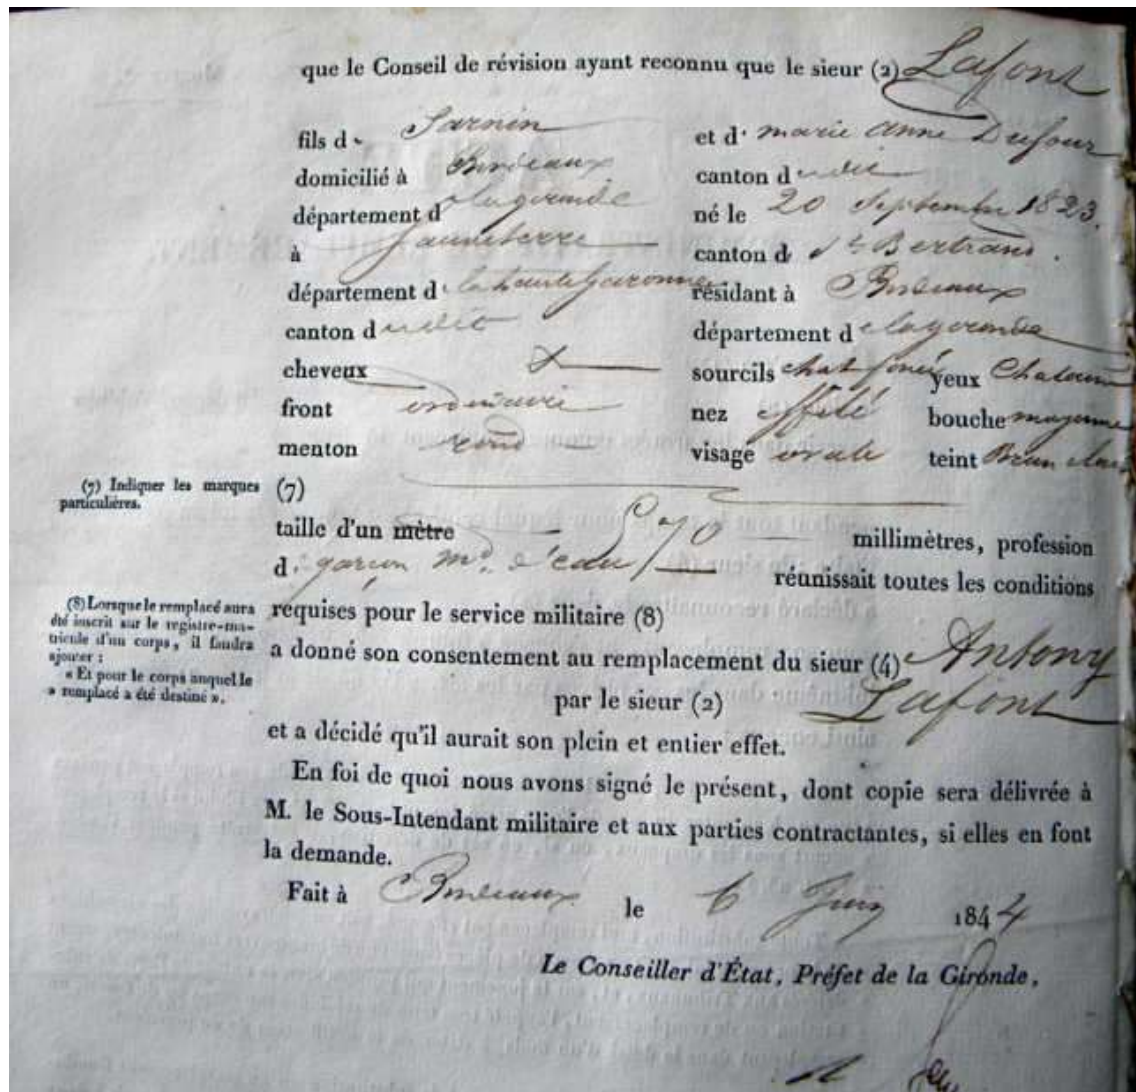 que le Conseil de révision ayant reconnu que le sieur (2) Lafont
fils d Sarnin et d' marie anne Dufour
domicilié à Bordeaux canton d udit
département d e la gironde né le 20 Septembre 1823.
à Sauveterre canton d e St Bertrand.
département d e la haute Garonne résidant à Bordeaux
canton d udit département d e la gironde
cheveux sourcils chat foncé yeux Chatain
front ordinaire nez effilé bouche moyenne
menton rond visage ovale teint Brun clair
(7) Indiquer les marques particulières. (7)
taille d'un mètre millimètres, profession
d. garçon md. d'eau réunissait toutes les conditions
(8) Lorsque le remplacé aura
été inscrit sur le registre-ma-
tricule d'un corps, il faudra
ajouter :
« Et pour le corps auquel le
» remplacé a été destiné ».
requises pour le service militaire (8)
a donné son consentement au remplacement du sieur (4) Antony
par le sieur (2) Lafont
et a décidé qu'il aurait son plein et entier effet.
En foi de quoi nous avons signé le présent, dont copie sera délivrée à
M. le Sous-Intendant militaire et aux parties contractantes, si elles en font
la demande.
Fait à Bordeaux le 6 Juin 1844
Le Conseiller d'État, Préfet de la Gironde,